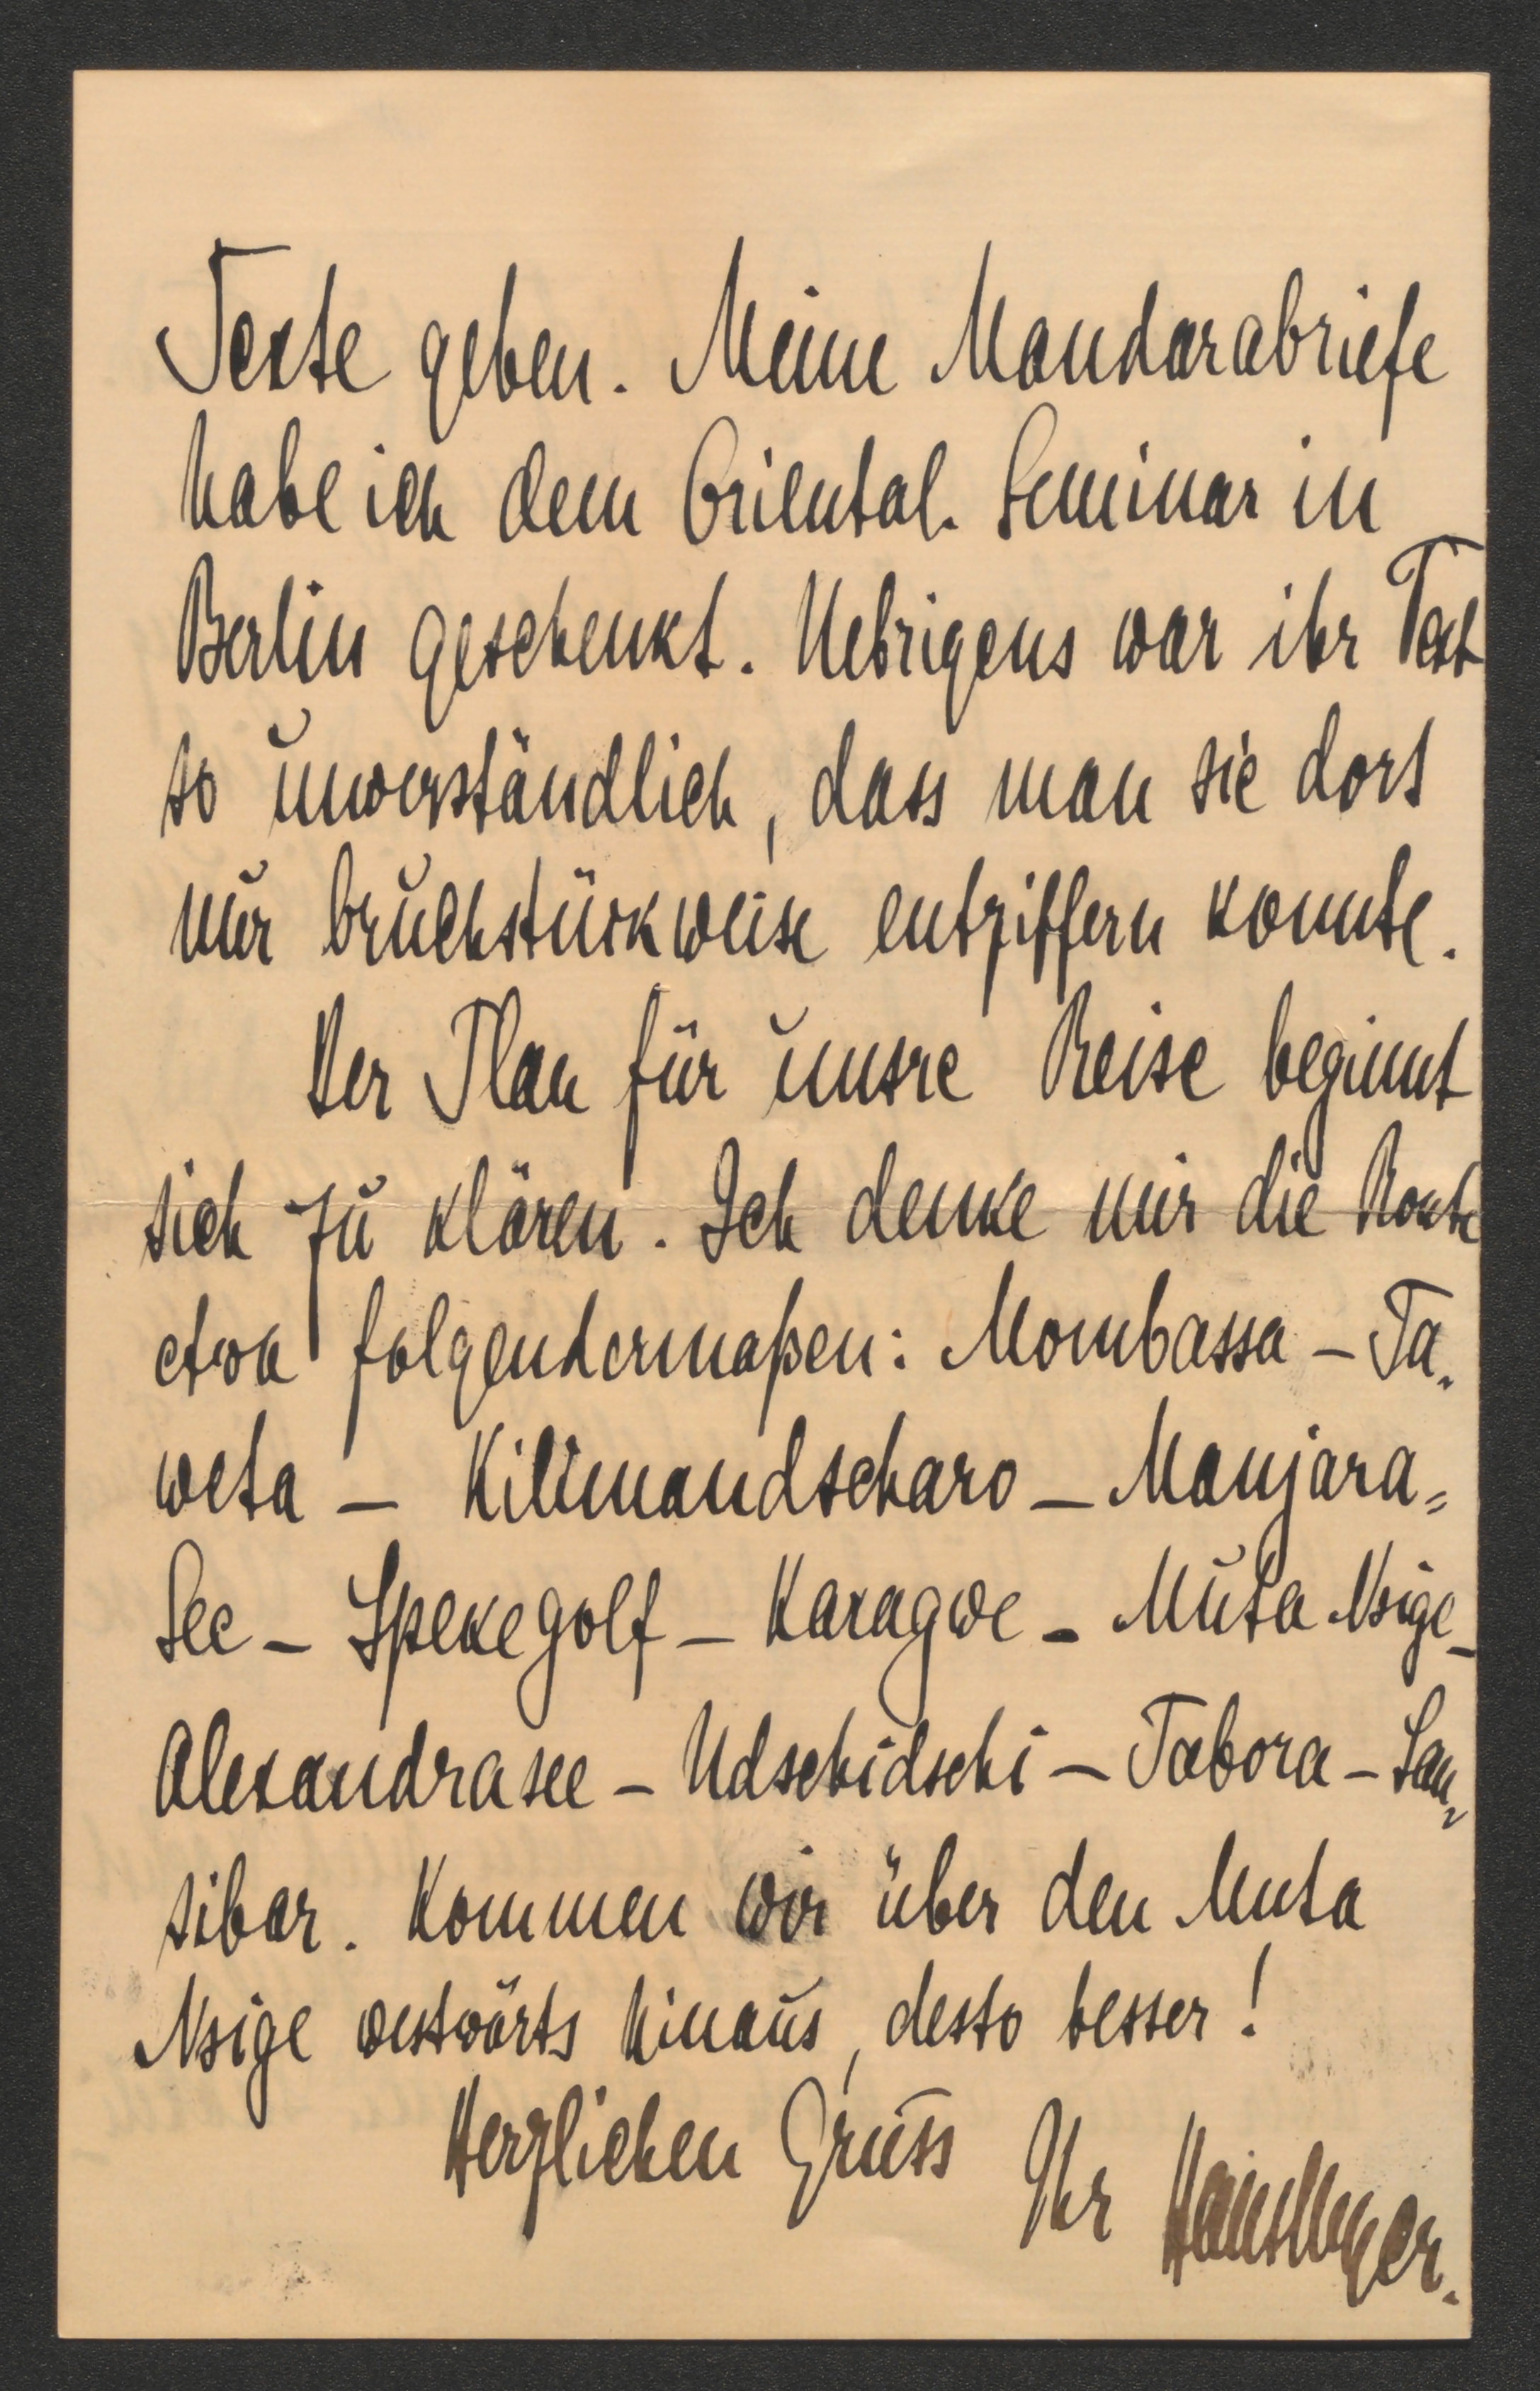 Texte geben. Meine Mandarabriefe
habe ich dem Oriental. Seminar in
Berlin geschenkt. Uebrigens war ihr Text
so unverständlich, dass man sie dort
nur bruchstückweise entziffern konnte.
Der Plan für unsre Reise beginnt
sich zu klären. Ich denke mir die Route
etwa folgendermaßen: Mombassa – Ta-
weta – Kilimandscharo – Manjara=
See – Spekegolf – Karagwe – Muta Nsige –
Alexandrasee – Udschidschi – Tabora – San=
sibar. Kommen wir über den Muta
Nsige westwärts hinaus, desto besser!
Herzlichen Gruss Ihr Hans Meyer.